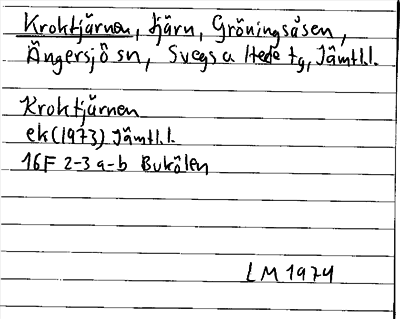 Kroktjärnen, tjärn, Gröningsåsen,
Ängersjö sn, Svegs a Hede tg, Jämtl.l.
Kroktjärnen
ek (1973) Jämtl.l.
16F 2-3 a-b Buköilen
LM 1974